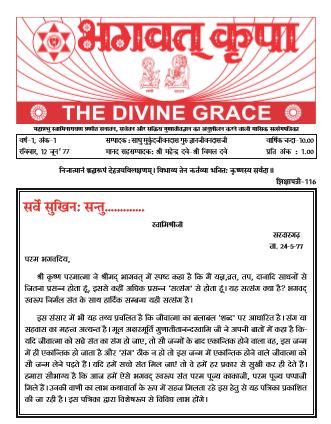 भगवत् कृपा
THE DIVINE GRACE
वर्ष-1, अंक-1
सम्पादक : साधु मुकुंदजीवनदास गुरु ज्ञानजीवनदासजी
वार्षिक चन्दा-10.00
रविवार, 12 जून' 77
मानद सहसम्पादक: श्री महेन्द्र दवे-श्री विमल दवे
प्रति अंक : 1.00
निजात्मानं ब्रह्मरूपं देहत्रयविलक्षणम् । विभाव्य तेन कर्तव्या भक्तिः कृष्णस्य सर्वदा ॥
शिक्षापत्री-116
सर्वे सुखिनः सन्तु.............
स्वामिश्रीजी
सरदारगढ़
ता. 24-5-77
परम भगवदिय,
श्री कृष्ण परमात्मा ने श्रीमद् भागवत् में स्पष्ट कहा है कि मैं यज्ञ,व्रत, तप, दानादि साधनों से
जितना प्रसन्न होता हूँ, इससे कहीं अधिक प्रसन्न 'सत्संग' से होता हूँ। यह सत्संग क्या है? भगवद्
स्वरूप निर्मल संत के साथ हार्दिक सम्बन्ध यही सत्संग है।
इस संसार में भी यह तथ्य प्रचलित है कि जीवात्मा का बलाबल 'शब्द' पर आधारित है। संग या
सहवास का महत्त्व अत्यन्त है। मूल अक्षरमूर्ति गुणातीतानन्दस्वामि जी ने अपनी बातों में कहा है कि-
यदि जीवात्मा को सच्चे संत का संग हो जाए, तो सौ जन्मों के बाद एकान्तिक होने वाला वह, इस जन्म
में ही एकान्तिक हो जाता है और 'संग' ठीक न हो तो इस जन्म में एकान्तिक होने वाले जीवात्मा को
सौ जन्म लेने पड़ते हैं। यदि हमें सच्चे संत मिल जाएं तो वे हमें हर प्रकार से सुखी कर ही देते हैं।
हमारा सौभाग्य है कि आज हमें ऐसे भगवद् स्वरूप संत परम पूज्य काकाजी, परम पूज्य पप्पाजी
मिले हैं। उनकी वाणी का लाभ कथावार्ता के रूप में सहज मिलता रहे इस हेतु से यह पत्रिका प्रकाशित
की जा रही है। इस पत्रिका द्वारा विशेषरूप से विविध लाभ होंगे।